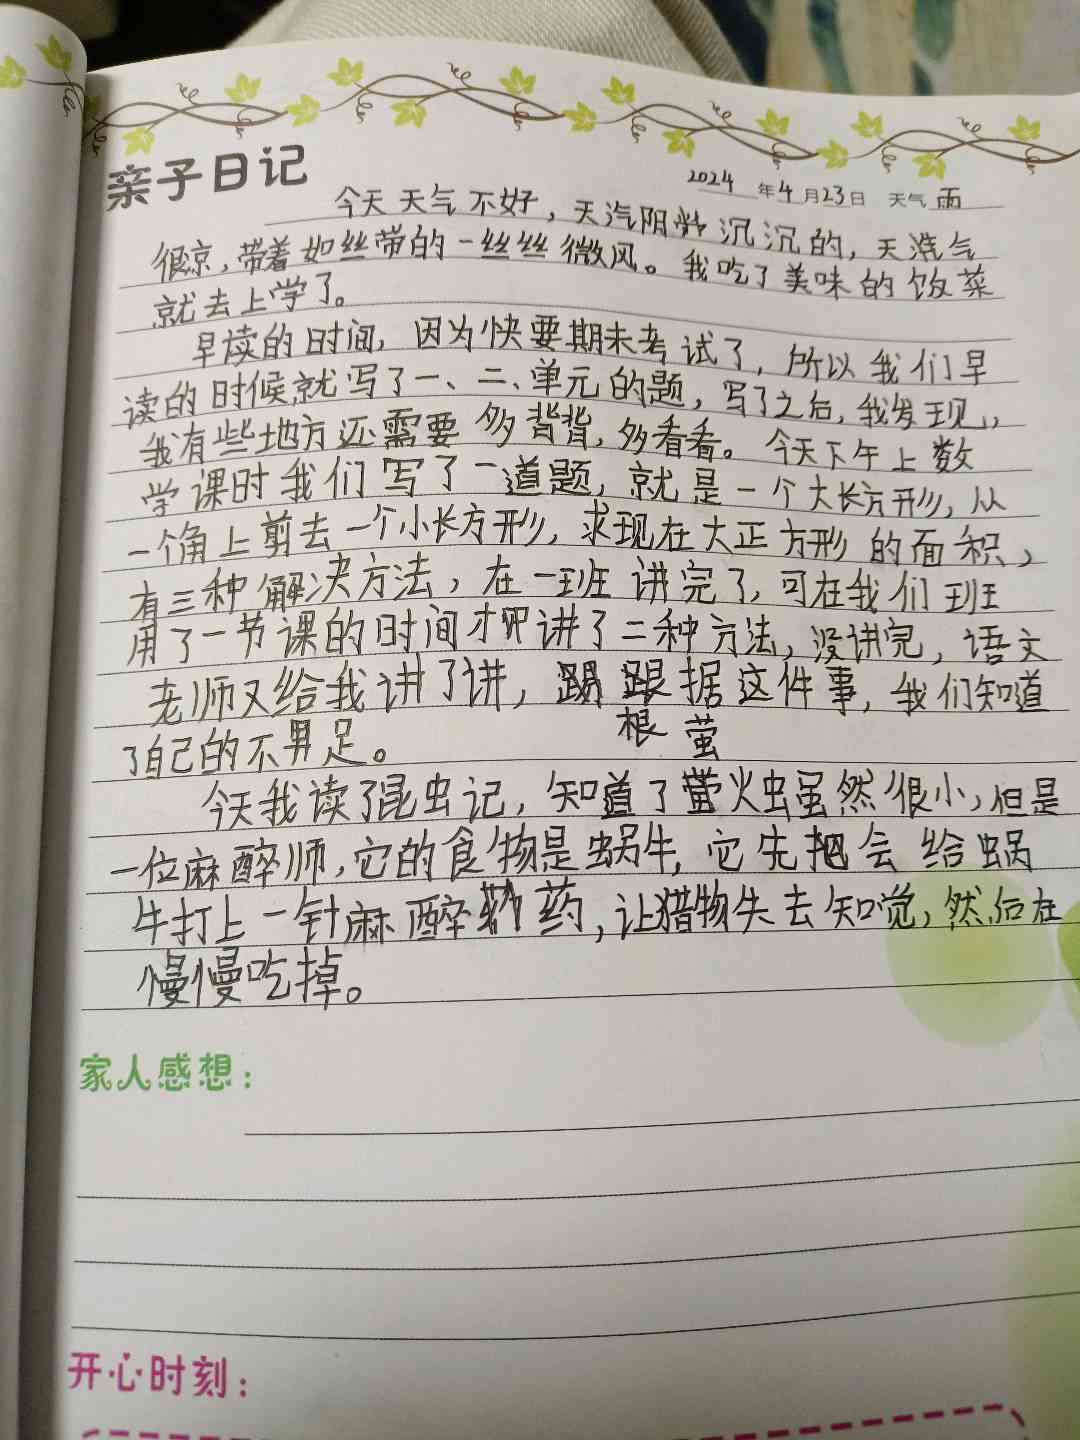 亲子日记
2024年4月23日 天气雨
今天天气不好，天汽阴沉沉的，天气
很凉，带着如丝带的一丝丝微风。我吃了美味的饭菜
就去上学了。
早读的时间，因为快要期末考试了，所以我们早
读的时候就写了一、二、单元的题，写了之后，我发现，
我有些地方还需要多背背，多看看。今天下午上数
学课时我们写了一道题，就是一个大长方形，从
一个角上剪去一个小长方形，求现在大正方形的面积，
有三种解决方法，在一班讲完了，可在我们班
用了一节课的时间才讲了二种方法，没讲完，语文
老师又给我讲了讲，跟据这件事，我们知道
根 萤
了自己的不足。
今天我读了昆虫记，知道了萤火虫虽然很小，但是
一位麻醉师，它的食物是蜗牛，它先把会给蜗
牛打上一针麻醉药，让猎物失去知觉，然后在
慢慢吃掉。
家人感想：
开心时刻：